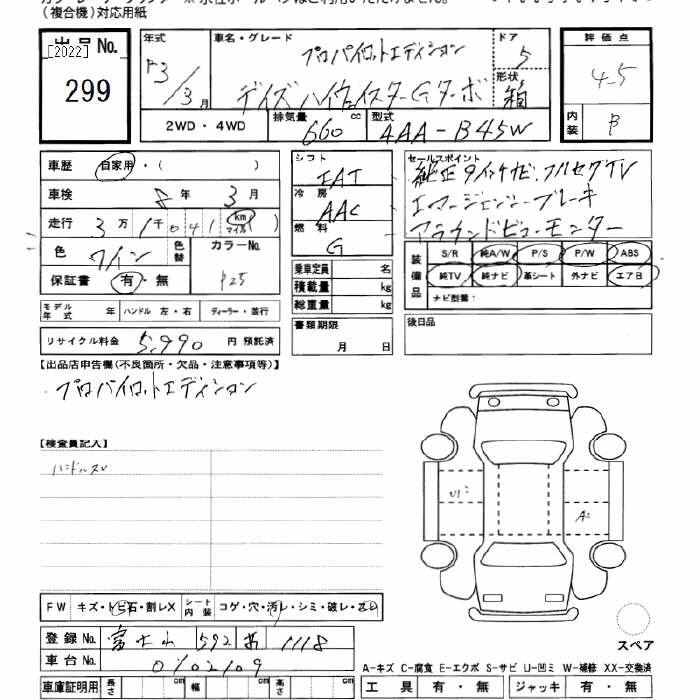 （複合機）対応用紙
出品No.
[2022]
299
年式
R3/3月
車名・グレード
プロパイロットエディション
デイズ ハイウェイスターGターボ
ドア
5
形状
箱
評価点
4.5
内装
B
2WD・4WD
排気量 660 cc
型式 4AA-B45W
車歴 自家用・( )
車検 8年 3月
走行 3万1千041 km マイル
色 ワイン
色替
カラーNo.
保証書 有・無
モデル年式 年
ハンドル 左・右
ディーラー・並行
リサイクル料金 5,990 円 預託済
シフト
IAT
冷房
AAC
燃料
G
乗車定員 名
積載量 kg
総重量 kg
書類期限
月 日
セールスポイント
純正9インチナビ、フルセグTV
エマージェンシーブレーキ
アラウンドビューモニター
装備品
S/R 純A/W P/S P/W ABS
純TV 純ナビ 革シート 外ナビ エアB
ナビ型番：
後日品
【出品店申告欄(不良箇所・欠品・注意事項等)】
・プロパイロットエディション
【検査員記入】
ハンドルスレ
U1
A2
FW キズ・トビ石・割レX
シート内装 コゲ・穴・汚レ・シミ・破レ・スレ
登録No. 富士山 592 1118
車台No. 0102109
車庫証明用 長さ cm 幅 cm 高さ cm
スペア
A-キズ C-腐食 E-エクボ S-サビ U-凹ミ W-補修 XX-交換済
工具 有・無 ジャッキ 有・無